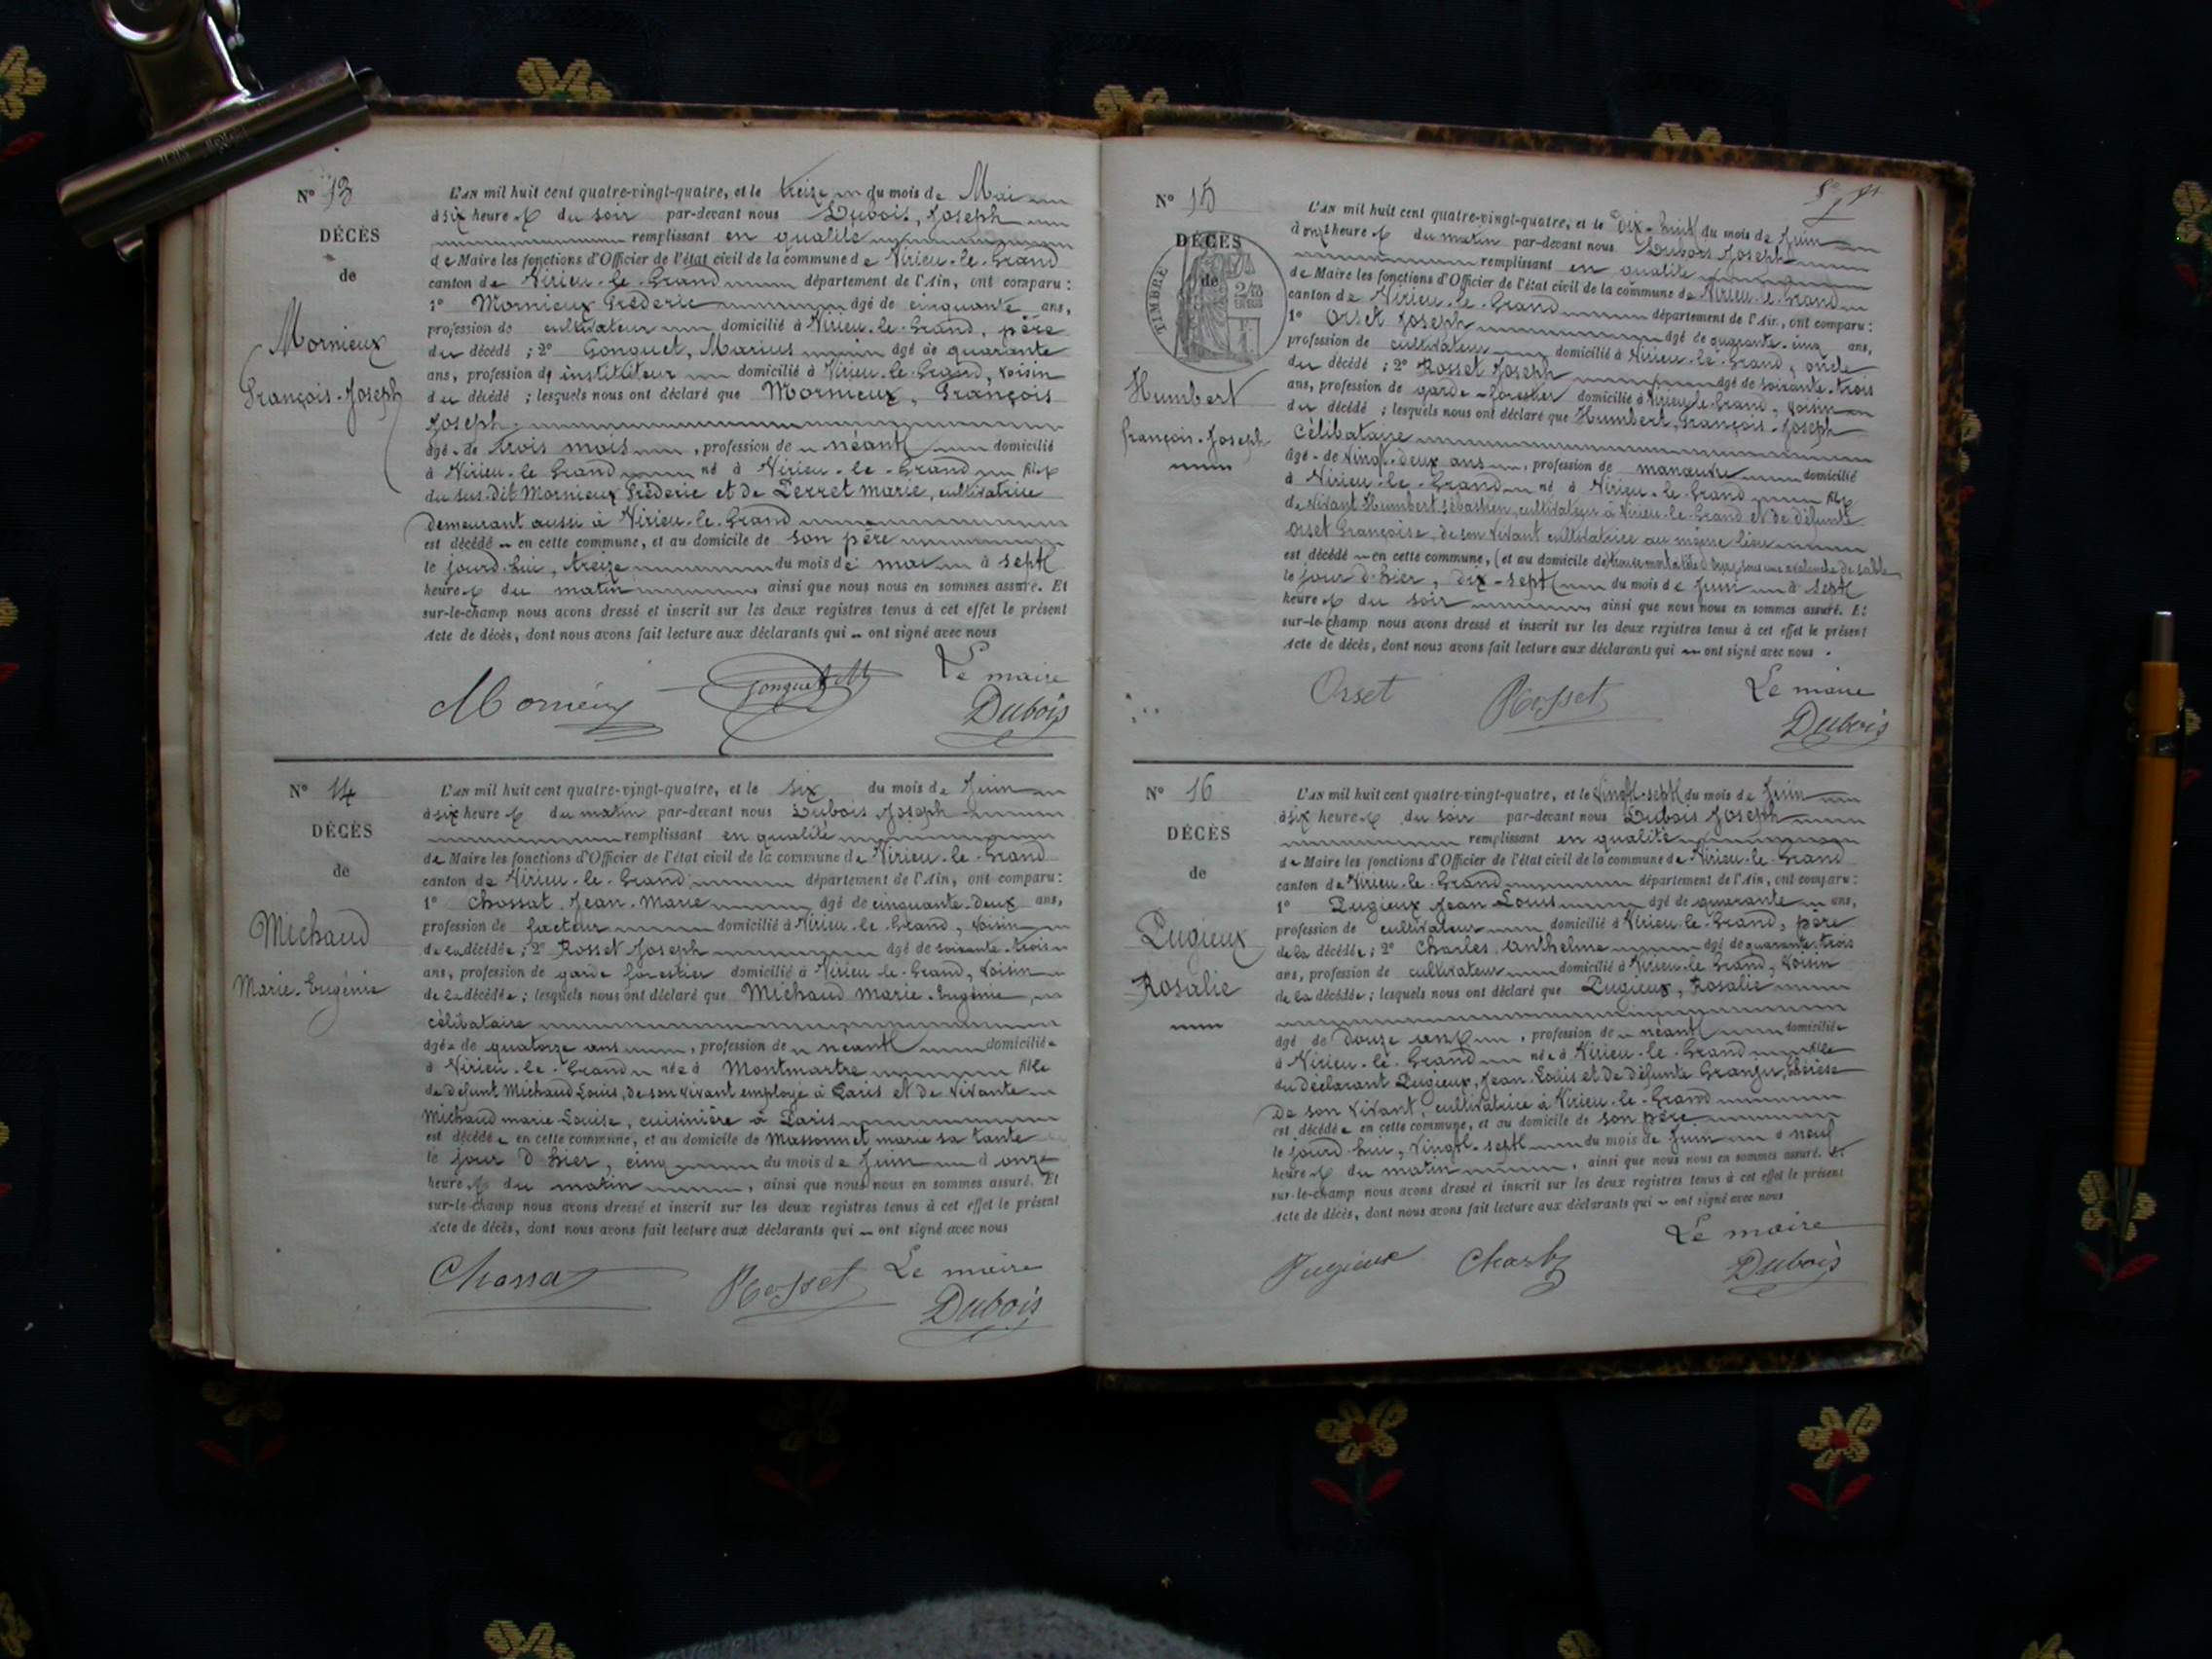 N° 13
DÉCÈS
de
Mornieux
François-Joseph
L'AN mil huit cent quatre-vingt-quatre, et le treize du mois de Mai
à six heures du soir par-devant nous Dubois, Joseph
remplissant en qualité
de Maire les fonctions d'Officier de l'état civil de la commune de Virieu-le-Grand
canton de Virieu-le-Grand département de l'Ain, ont comparu :
1° Mornieux Fréderic âgé de cinquante ans,
profession de cultivateur domicilié à Virieu-le-Grand, père
du décédé ; 2° Gonguet, Marius âgé de quarante
ans, profession de instituteur domicilié à Virieu-le-Grand, voisin
du décédé ; lesquels nous ont déclaré que Mornieux, François
Joseph
âgé de trois mois, profession de néant domicilié
à Virieu-le Grand né à Virieu-le-Grand fils
du sus-dit Mornieux Fréderic et de Perret marie, cultivatrice
demeurant aussi à Virieu-le-Grand
est décédé en cette commune, et au domicile de son père
le jourd'hui, treize du mois de mai à sept
heures du matin ainsi que nous nous en sommes assuré. Et
sur-le-champ nous avons dressé et inscrit sur les deux registres tenus à cet effet le présent
Acte de décès, dont nous avons fait lecture aux déclarants qui ont signé avec nous
Le maire
Gonguet M
Dubois
N° 14
DÉCÈS
de
Michaud
Marie-Eugénie
L'AN mil huit cent quatre-vingt-quatre, et le six du mois de Juin
à six heures du matin par-devant nous Dubois Joseph
remplissant en qualité
de Maire les fonctions d'Officier de l'état civil de la commune de Virieu-le-Grand
canton de Virieu-le-Grand département de l'Ain, ont comparu :
1° Chossat Jean-Marie âgé de cinquante-deux ans,
profession de facteur domicilié à Virieu-le-Grand, voisin
de la décédée ; 2° Rosset Joseph âgé de soixante-trois
ans, profession de garde forestier domicilié à Virieu-le-Grand, voisin
de la décédée ; lesquels nous ont déclaré que Michaud marie-Eugénie,
célibataire
âgée de quatorze ans, profession de néant domiciliée
à Virieu-le-Grand née à Montmartre fille
de défunt Michaud Louis, de son vivant employé à Paris et de vivante
Michaud marie Louise, cuisinière à Paris
est décédée en cette commune, et au domicile de Massonnet marie sa tante
le jour d'hier, cinq du mois de Juin à onze
heures du matin, ainsi que nous nous en sommes assuré. Et
sur-le-champ nous avons dressé et inscrit sur les deux registres tenus à cet effet le présent
Acte de décès, dont nous avons fait lecture aux déclarants qui ont signé avec nous
Chossat Rosset Le maire
Dubois
N° 15
DÉCÈS
de
TIMBRE
Humbert
François-Joseph
L'AN mil huit cent quatre-vingt-quatre, et le Dix-huit du mois de Juin
à onze heures du matin par-devant nous Dubois Joseph
remplissant en qualité
de Maire les fonctions d'Officier de l'état civil de la commune de Virieu-le-Grand
canton de Virieu-le-Grand département de l'Ain, ont comparu :
1° Orset Joseph âgé de quarante-cinq ans,
profession de cultivateur domicilié à Virieu-le-Grand, oncle
du décédé ; 2° Rosset Joseph âgé de soixante-trois
ans, profession de garde-forestier domicilié à Virieu-le-Grand, voisin
du décédé ; lesquels nous ont déclaré que Humbert, François-Joseph
célibataire
âgé de vingt-deux ans, profession de manœuvre domicilié
à Virieu-le-Grand né à Virieu-le-Grand fils
de vivant Humbert Sébastien, cultivateur à Virieu-le-Grand et de défunte
Orset Françoise, de son vivant cultivatrice au même lieu
est décédé en cette commune, (et au domicile de) sous une avalanche de sable
le jour d'hier, dix-sept du mois de Juin à sept
heures du soir, ainsi que nous nous en sommes assuré. Et
sur-le-champ nous avons dressé et inscrit sur les deux registres tenus à cet effet le présent
Acte de décès, dont nous avons fait lecture aux déclarants qui ont signé avec nous.
Orset Rosset Le maire
Dubois
N° 16
DÉCÈS
de
Pugieux
Rosalie
L'AN mil huit cent quatre-vingt-quatre, et le vingt-sept du mois de Juin
à six heures du soir par-devant nous Dubois Joseph
remplissant en qualité
de Maire les fonctions d'Officier de l'état civil de la commune de Virieu-le-Grand
canton de Virieu-le-Grand département de l'Ain, ont comparu :
1° Pugieux Jean-Louis âgé de quarante ans,
profession de cultivateur domicilié à Virieu-le-Grand, père
de la décédée ; 2° Charles Anthelme âgé de quarante-trois
ans, profession de cultivateur domicilié à Virieu-le-Grand, voisin
de la décédée ; lesquels nous ont déclaré que Pugieux, Rosalie
âgé de douze ans, profession de néant domiciliée
à Virieu-le-Grand née à Virieu-le-Grand fille
du déclarant Pugieux, Jean-Louis et de défunte Thérèse
de son vivant, cultivatrice à Virieu-le-Grand
est décédée en cette commune, et au domicile de son père
le jourd'hui, vingt-sept du mois de Juin à neuf
heures du matin, ainsi que nous nous en sommes assuré. Et
sur-le-champ nous avons dressé et inscrit sur les deux registres tenus à cet effet le présent
Acte de décès, dont nous avons fait lecture aux déclarants qui ont signé avec nous
Le maire
Pugieux Charles
Dubois